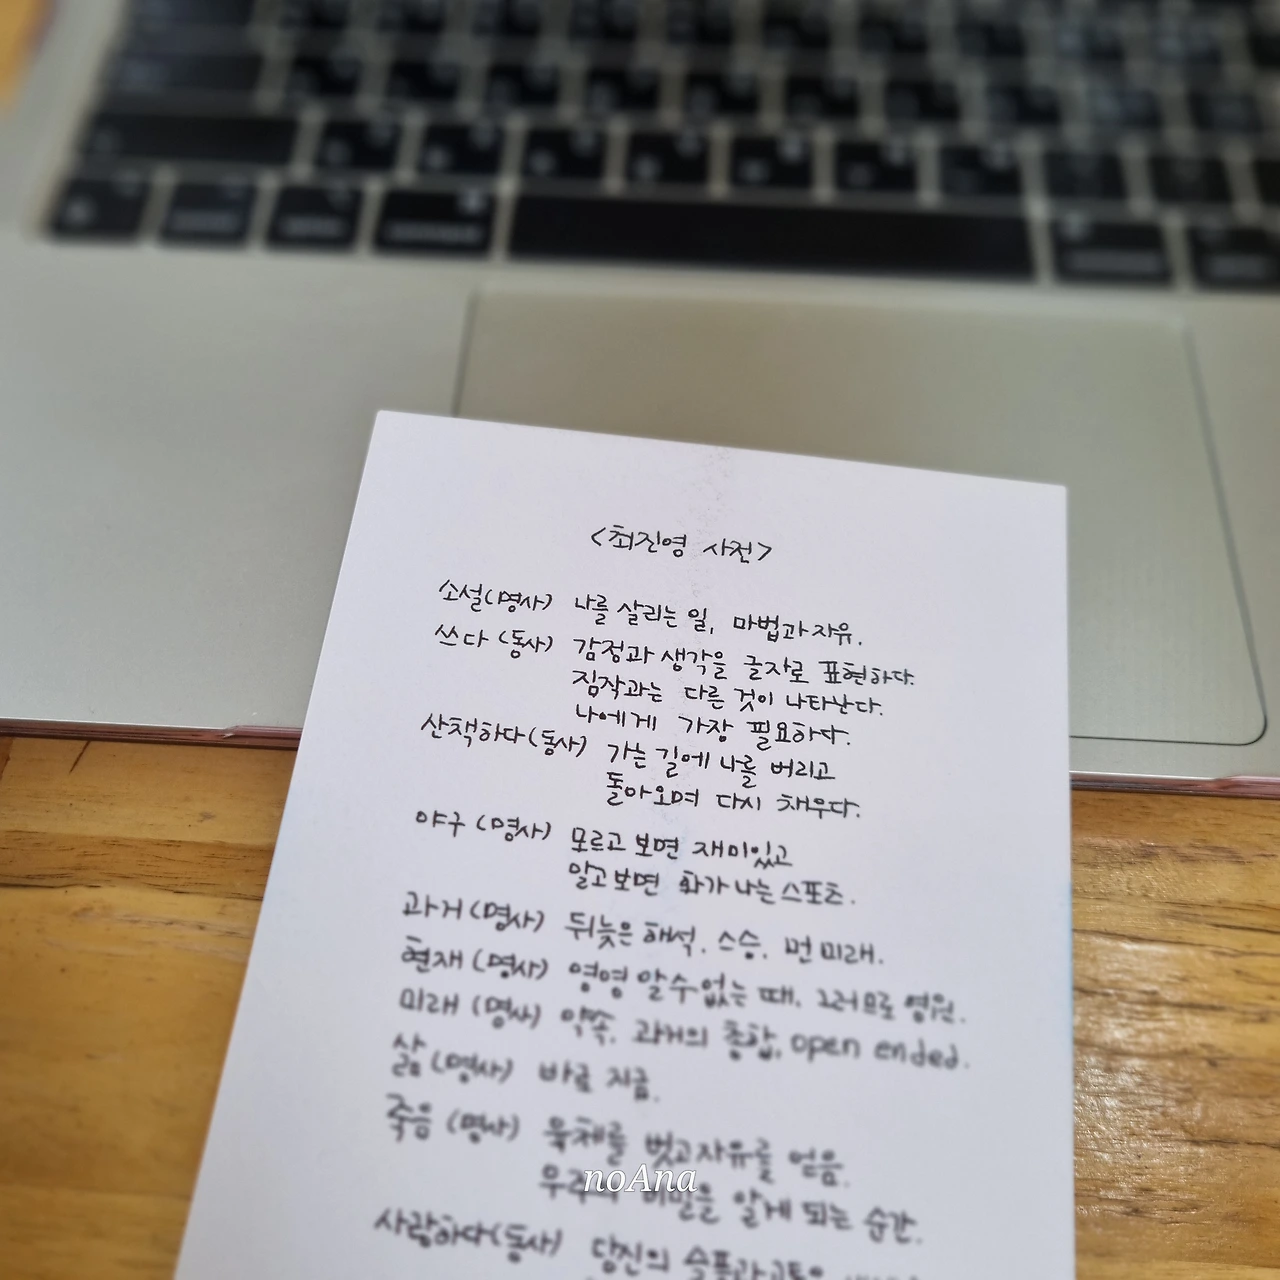 <최진영 사전>
소설(명사) 나를 살리는 일, 마법과 자유.
쓰다 (동사) 감정과 생각을 글자로 표현하다.
짐작과는 다른 것이 나타난다.
나에게 가장 필요하다.
산책하다(동사) 가는 길에 나를 버리고
돌아오며 다시 채우다.
야구 (명사) 모르고 보면 재미있고
알고 보면 화가 나는 스포츠.
과거 (명사) 뒤늦은 해석. 스승. 먼 미래.
현재 (명사) 영영 알 수 없는 때. 그러므로 영원.
미래 (명사) 약속. 과거의 총합, open ended.
삶 (명사) 바로 지금.
죽음 (명사) 육체를 벗고 자유를 얻음.
비밀을 알게 되는 순간.
noAna
사랑하다(동사) 당신의 슬픔과 고통을